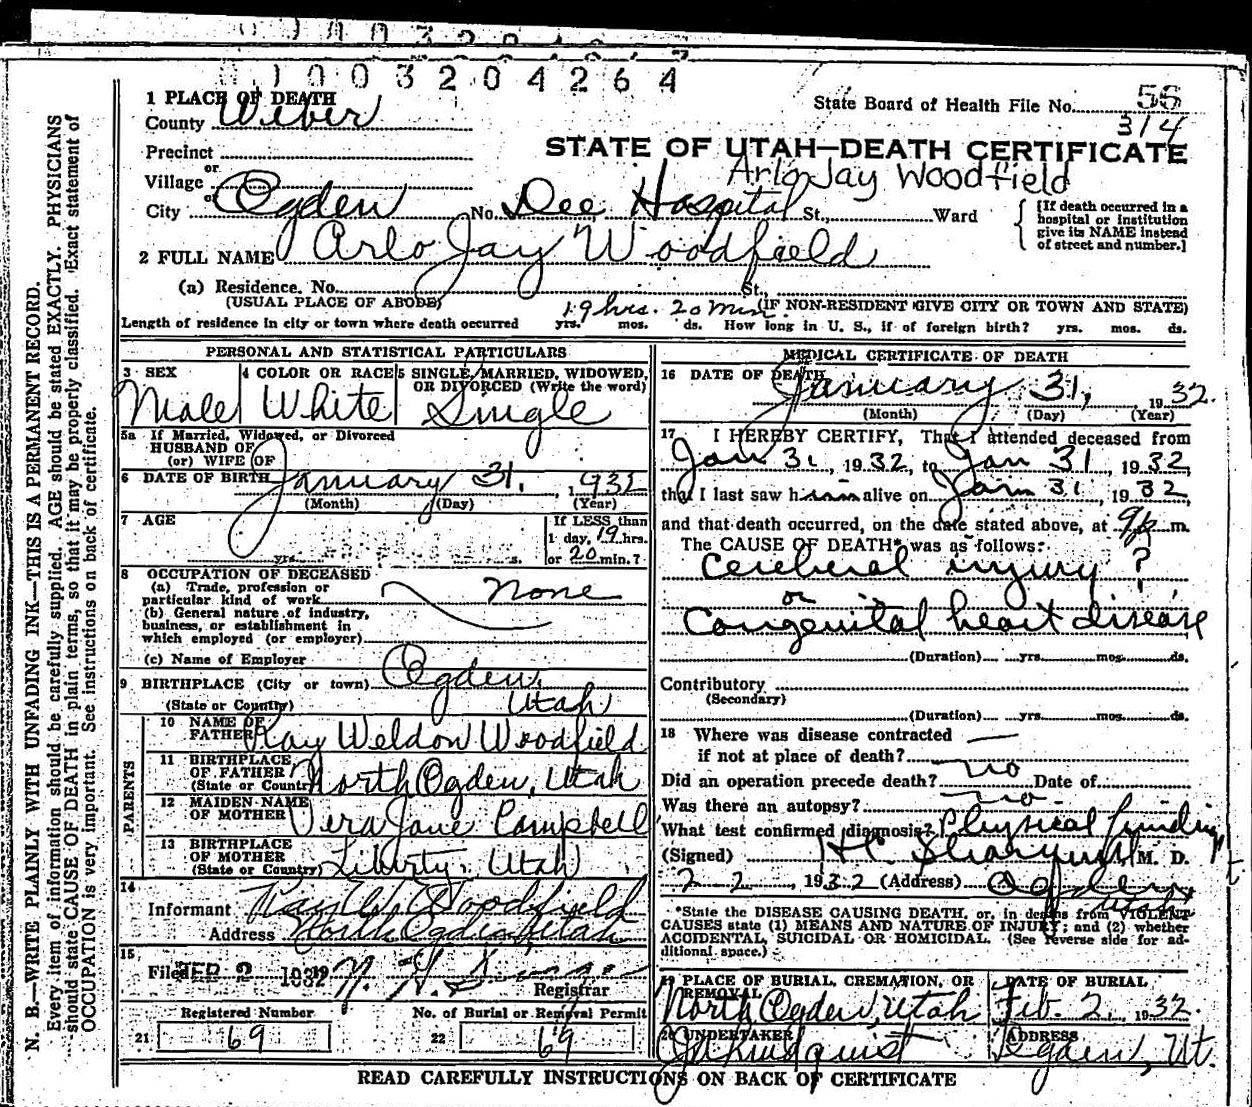 1003204264
1 PLACE OF DEATH
County Weber
State Board of Health File No. 56
314
Precinct
STATE OF UTAH—DEATH CERTIFICATE
Arlo Jay Woodfield
or
Village
or
City Ogden No. Dee Hospital St., Ward
[If death occurred in a hospital or institution give its NAME instead of street and number.]
2 FULL NAME Arlo Jay Woodfield
(a) Residence. No. St.,
(USUAL PLACE OF ABODE) (IF NON-RESIDENT GIVE CITY OR TOWN AND STATE)
19 hrs. 20 Min.
Length of residence in city or town where death occurred yrs. mos. ds. How long in U. S., if of foreign birth? yrs. mos. ds.
PERSONAL AND STATISTICAL PARTICULARS
3 SEX 4 COLOR OR RACE 5 SINGLE, MARRIED, WIDOWED, OR DIVORCED (Write the word)
Male White Single
5a If Married, Widowed, or Divorced
HUSBAND OF
(or) WIFE OF
6 DATE OF BIRTH January 31, 1932
(Month) (Day) (Year)
7 AGE
If LESS than
1 day, 19 hrs.
yrs. s. or 20 min.?
8 OCCUPATION OF DECEASED
(a) Trade, profession or
particular kind of work None
(b) General nature of industry,
business, or establishment in
which employed (or employer)
(c) Name of Employer
9 BIRTHPLACE (City or town) Ogden,
(State or Country) Utah
PARENTS
10 NAME OF FATHER Ray Weldon Woodfield
11 BIRTHPLACE OF FATHER (State or Country) North Ogden, Utah
12 MAIDEN NAME OF MOTHER Vera Jane Campbell
13 BIRTHPLACE OF MOTHER (State or Country) Liberty, Utah
14
Informant Ray W. Woodfield
Address North Ogden Utah
15
Filed FEB 2 1932
Registrar
Registered Number No. of Burial or Removal Permit
21 69 22 69
MEDICAL CERTIFICATE OF DEATH
16 DATE OF DEATH January 31, 1932.
(Month) (Day) (Year)
17 I HEREBY CERTIFY, That I attended deceased from
Jan 31, 1932, to Jan 31, 1932,
that I last saw him alive on Jan 31, 1932
and that death occurred, on the date stated above, at 9 p m.
The CAUSE OF DEATH* was as follows:
Cerebral injury ?
or
Congenital heart disease
(Duration) yrs. mos. ds.
Contributory
(Secondary)
(Duration) yrs. mos. ds.
18 Where was disease contracted
if not at place of death?
Did an operation precede death? no Date of
Was there an autopsy? no
What test confirmed diagnosis? Physical finding
(Signed) M. D.
2-2, 1932 (Address) Ogden
Utah
*State the DISEASE CAUSING DEATH, or, in deaths from VIOLENT
CAUSES state (1) MEANS AND NATURE OF INJURY; and (2) whether
ACCIDENTAL, SUICIDAL OR HOMICIDAL. (See reverse side for ad-
ditional space.)
19 PLACE OF BURIAL, CREMATION, OR REMOVAL DATE OF BURIAL
North Ogden, Utah Feb. 2, 1932.
20 UNDERTAKER ADDRESS
Ogden, Ut.
READ CAREFULLY INSTRUCTIONS ON BACK OF CERTIFICATE
N. B.—WRITE PLAINLY WITH UNFADING INK—THIS IS A PERMANENT RECORD.
Every item of information should be carefully supplied. AGE should be stated EXACTLY. PHYSICIANS
should state CAUSE OF DEATH in plain terms, so that it may be properly classified. Exact statement of
OCCUPATION is very important. See instructions on back of certificate.